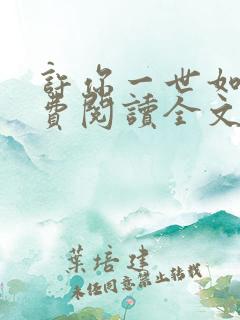 許你一世如
費閱讀全文
葉培建
未經同意禁止轉載